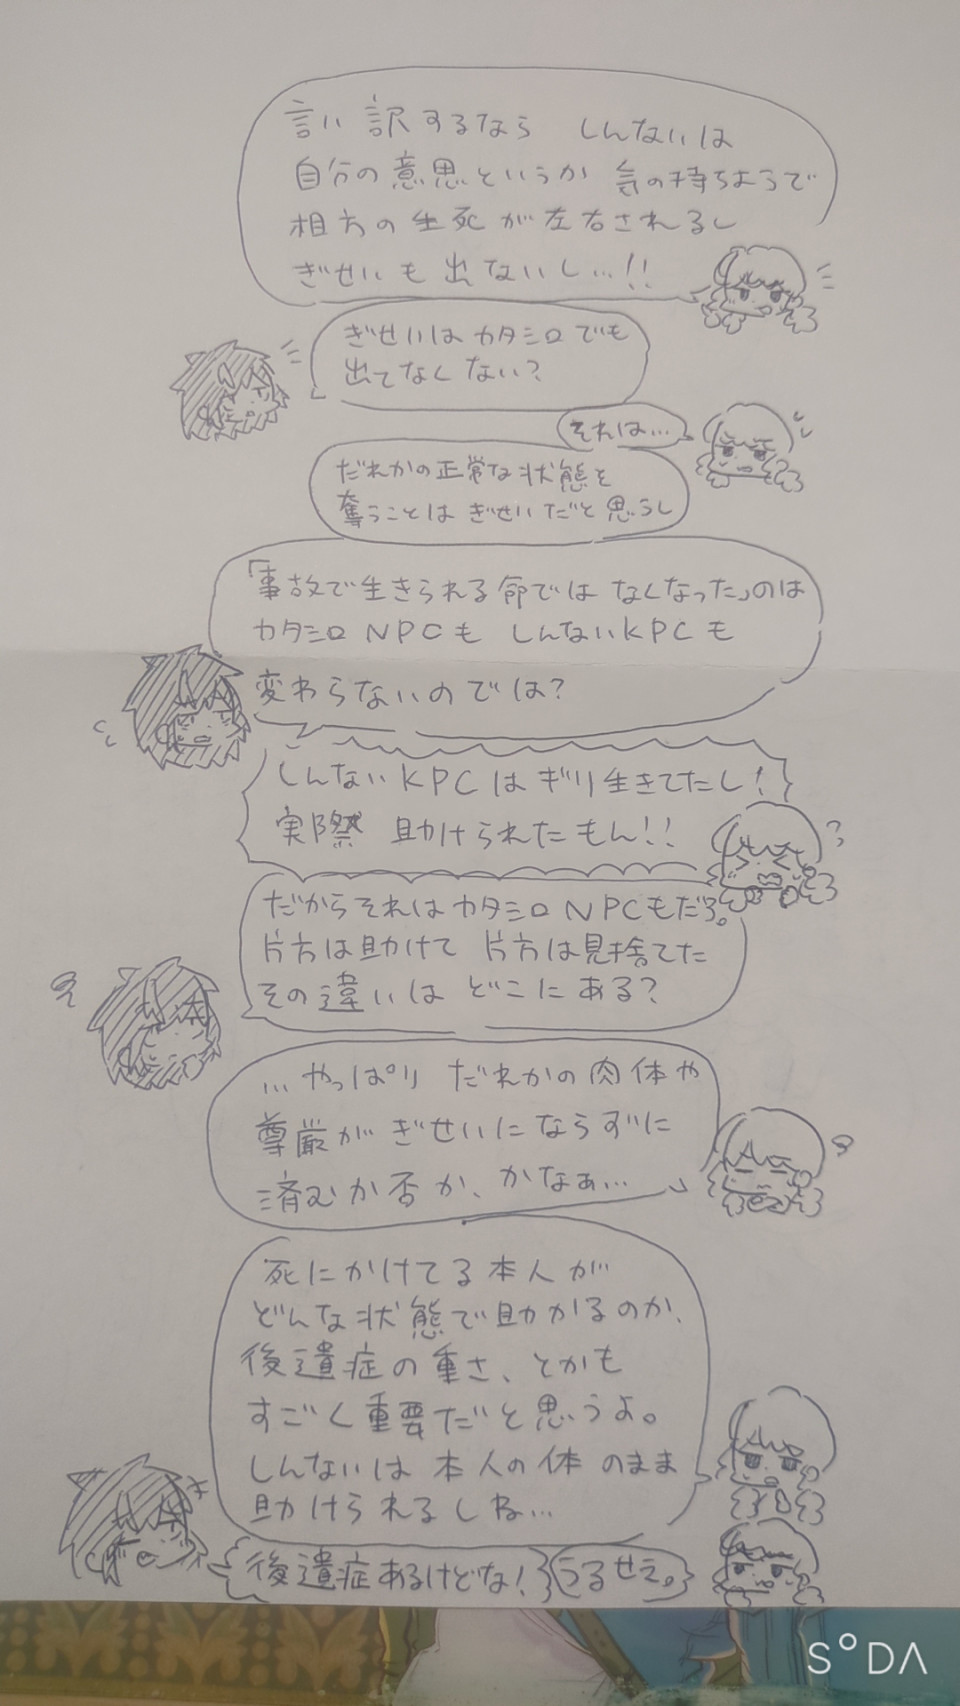 言い訳するなら しんないは
自分の意思というか 気の持ちようで
相方の生死が左右されるし
ぎせいも出ないし…!!
ぎせいはカタシロでも
出てなくない?
それは…
だれかの正常な状態を
奪うことはぎせいだと思うし
「事故で生きられる命ではなくなった」のは
カタシロNPCも しんないKPCも
変わらないのでは?
しんないKPCはギリ生きてたし!
実際 助けられたもん!!
だからそれはカタシロNPCもだろ。
片方は助けて 片方は見捨てた
その違いは どこにある?
…やっぱり だれかの肉体や
尊厳がぎせいにならずに
済むか否か、かなぁ…
死にかけてる本人が
どんな状態で助かるのか、
後遺症の重さ、とかも
すごく重要だと思うよ。
しんないは 本人の体のまま
助けられるしね…
後遺症あるけどな!
うるせえ。
SODA